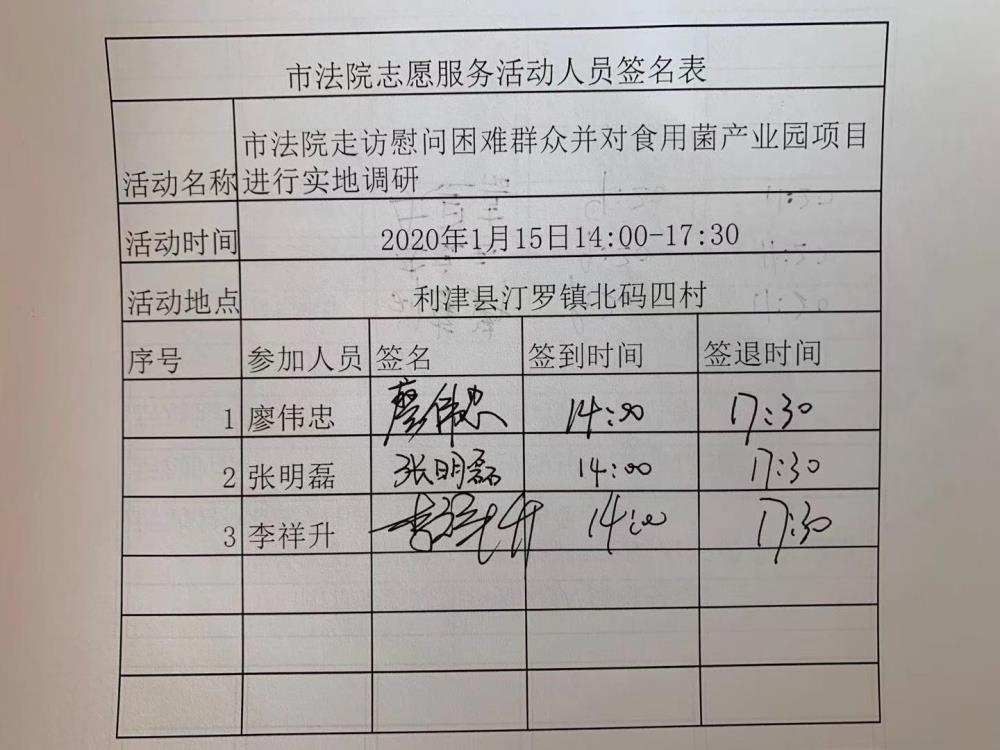 市法院志愿服务活动人员签名表
活动名称 市法院走访慰问困难群众并对食用菌产业园项目
进行实地调研
活动时间 2020年1月15日14:00-17:30
活动地点 利津县汀罗镇北码四村
序号 参加人员 签名 签到时间 签退时间
1 廖伟忠 廖伟忠 14:00 17:30
2 张明磊 张明磊 14:00 17:30
3 李祥升 李祥升 14:00 17:30